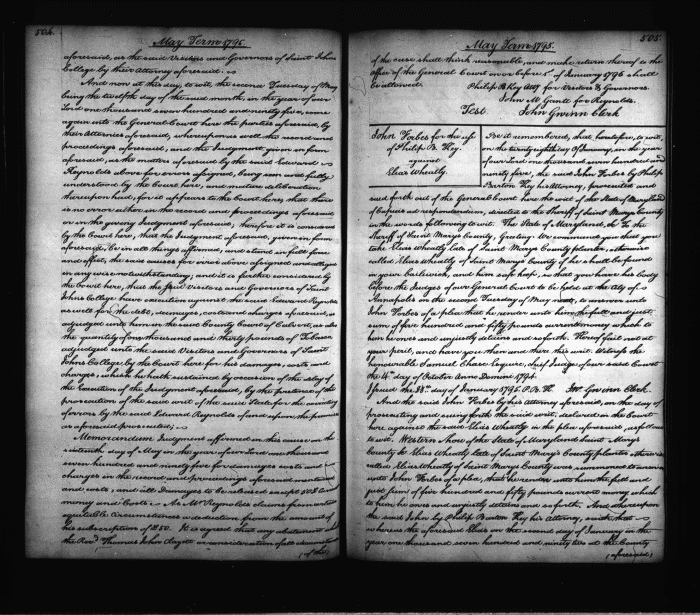 504.
May Term 1795.
aforesaid, as the said Visitors and Governors of Saint Johns
College by their Attorney aforesaid.
And now at this day, to wit, the second Tuesday of May
being the twelfth day of the said month, in the year of our
Lord one thousand seven hundred and ninety five, come
again into the General Court here the parties aforesaid, by
their Attornies aforesaid, whereupon as well the record and
proceedings aforesaid, and the Judgment given in form
aforesaid, as the matters aforesaid by the said Edward
Reynolds above for errors assigned, being seen and fully
understood by the Court here, and mature deliberation
thereupon had, for it appears to the Court here, that there
is no error either in the record and proceedings aforesaid
or in the giving Judgment aforesaid, therefore it is considered
by the Court here, that the Judgment aforesaid, given in form
aforesaid, be in all things affirmed, and stand in full force
and effect, the said causes for error above assigned and alleged
in any wise notwithstanding; and it is further considered by
the Court here, that the said Visitors and Governors of Saint
Johns College have execution against the said Edward Reynolds
as well for the debt, damages, costs and charges aforesaid, as
adjudged unto them in the said County Court of Calvert, as also
the quantity of one thousand and thirty pounds of Tobacco
adjudged unto the said Visitors and Governors of Saint
Johns College by the Court here for his damages, costs and
charges, which he hath sustained by occasion of the delay of
the Execution of the Judgment aforesaid, by the pretence of the
prosecution of the said writ of the said State for the correcting
of errors by the said Edward Reynolds of and upon the premises
as aforesaid prosecuted;
Memorandum Judgment affirmed in this cause on the
sixteenth day of May in the year of our Lord one thousand
seven hundred and ninety five for damages costs and
charges in the record and proceedings aforesaid mentioned
and costs, and all Damages to be released except
money and Costs. As Mr. Reynolds claims from certain
equitable circumstances a deduction from the amount of
his subscription of It is agreed that any abatement which
the Revd. Thomas John Claggett on consideration of all circumstances
(of the)
505.
May Term 1795.
of the case shall think reasonable, and make return thereof to the
office of the General Court on or before 5th of January 1796 shall
be allowed.
Philip B Key Atty for Visitors & Governors.
John M. Gantt for Reynolds.
Test John Gwinn Clerk
John Forbes for the use
of Philip B. Key.
against
Elias Wheatly.
Be it remembered, that heretofore, to wit,
on the twenty eighth day of January, in the year
of our Lord one thousand seven hundred and
ninety five, the said John Forbes by Philip
Barton Key his Attorney, prosecuted and
sued forth out of the General Court here the writ of the State of Maryland
of Capias ad respondendum, directed to the Sheriff of Saint Marys County
in the words following to wit. The State of Maryland, to the
Sheriff of Saint Marys County, Greeting. We command you that you
take Elias Wheatly late of Saint Marys County planter, otherwise
called Elias Wheatly of Saint Marys County if he shall be found
in your Bailiwick, and him safe keep, so that you have his body
before the Judges of our General Court to be held at the City of
Annapolis on the second Tuesday of May next, to answer unto
John Forbes of a plea that he render unto him the full and just
sum of five hundred and fifty pounds current money which to
him he owes and unjustly detains and so forth. Hereof fail not at
your peril, and have you then and there this writ. Witness the
honourable Samuel Chase Esquire, chief Judge of our said Court
the day of October Anno Domini 1794.
Issued the 28th day of January 1795. P. B. K. Jno. Gwinn Clerk.
And the said John Forbes by his attorney aforesaid, on the day of
prosecuting and suing forth the said writ, declared in the Court
here against the said Elias Wheatly in the plea aforesaid, as follows
to wit. Western Shore of the State of Maryland Saint Marys
County Sc. Elias Wheatly late of Saint Marys County planter otherwise
called Elias Wheatly of Saint Marys County was summoned to answer
unto John Forbes of a plea, that he render unto him the full and
just sum of five hundred and fifty pounds current money which
to him he owes and unjustly detains and so forth. And whereupon
the said John by Philip Barton Key his Attorney, saith that
whereas the aforesaid Elias on the second day of January in the
year one thousand seven hundred and ninety two at the County
(aforesaid)